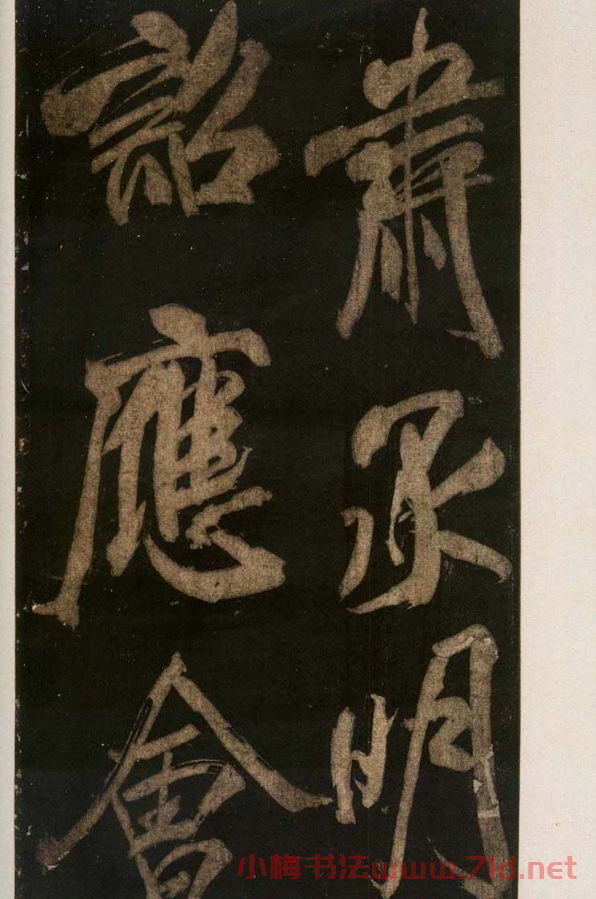 肅承明
詔應會
小梅书法www.7ld.net